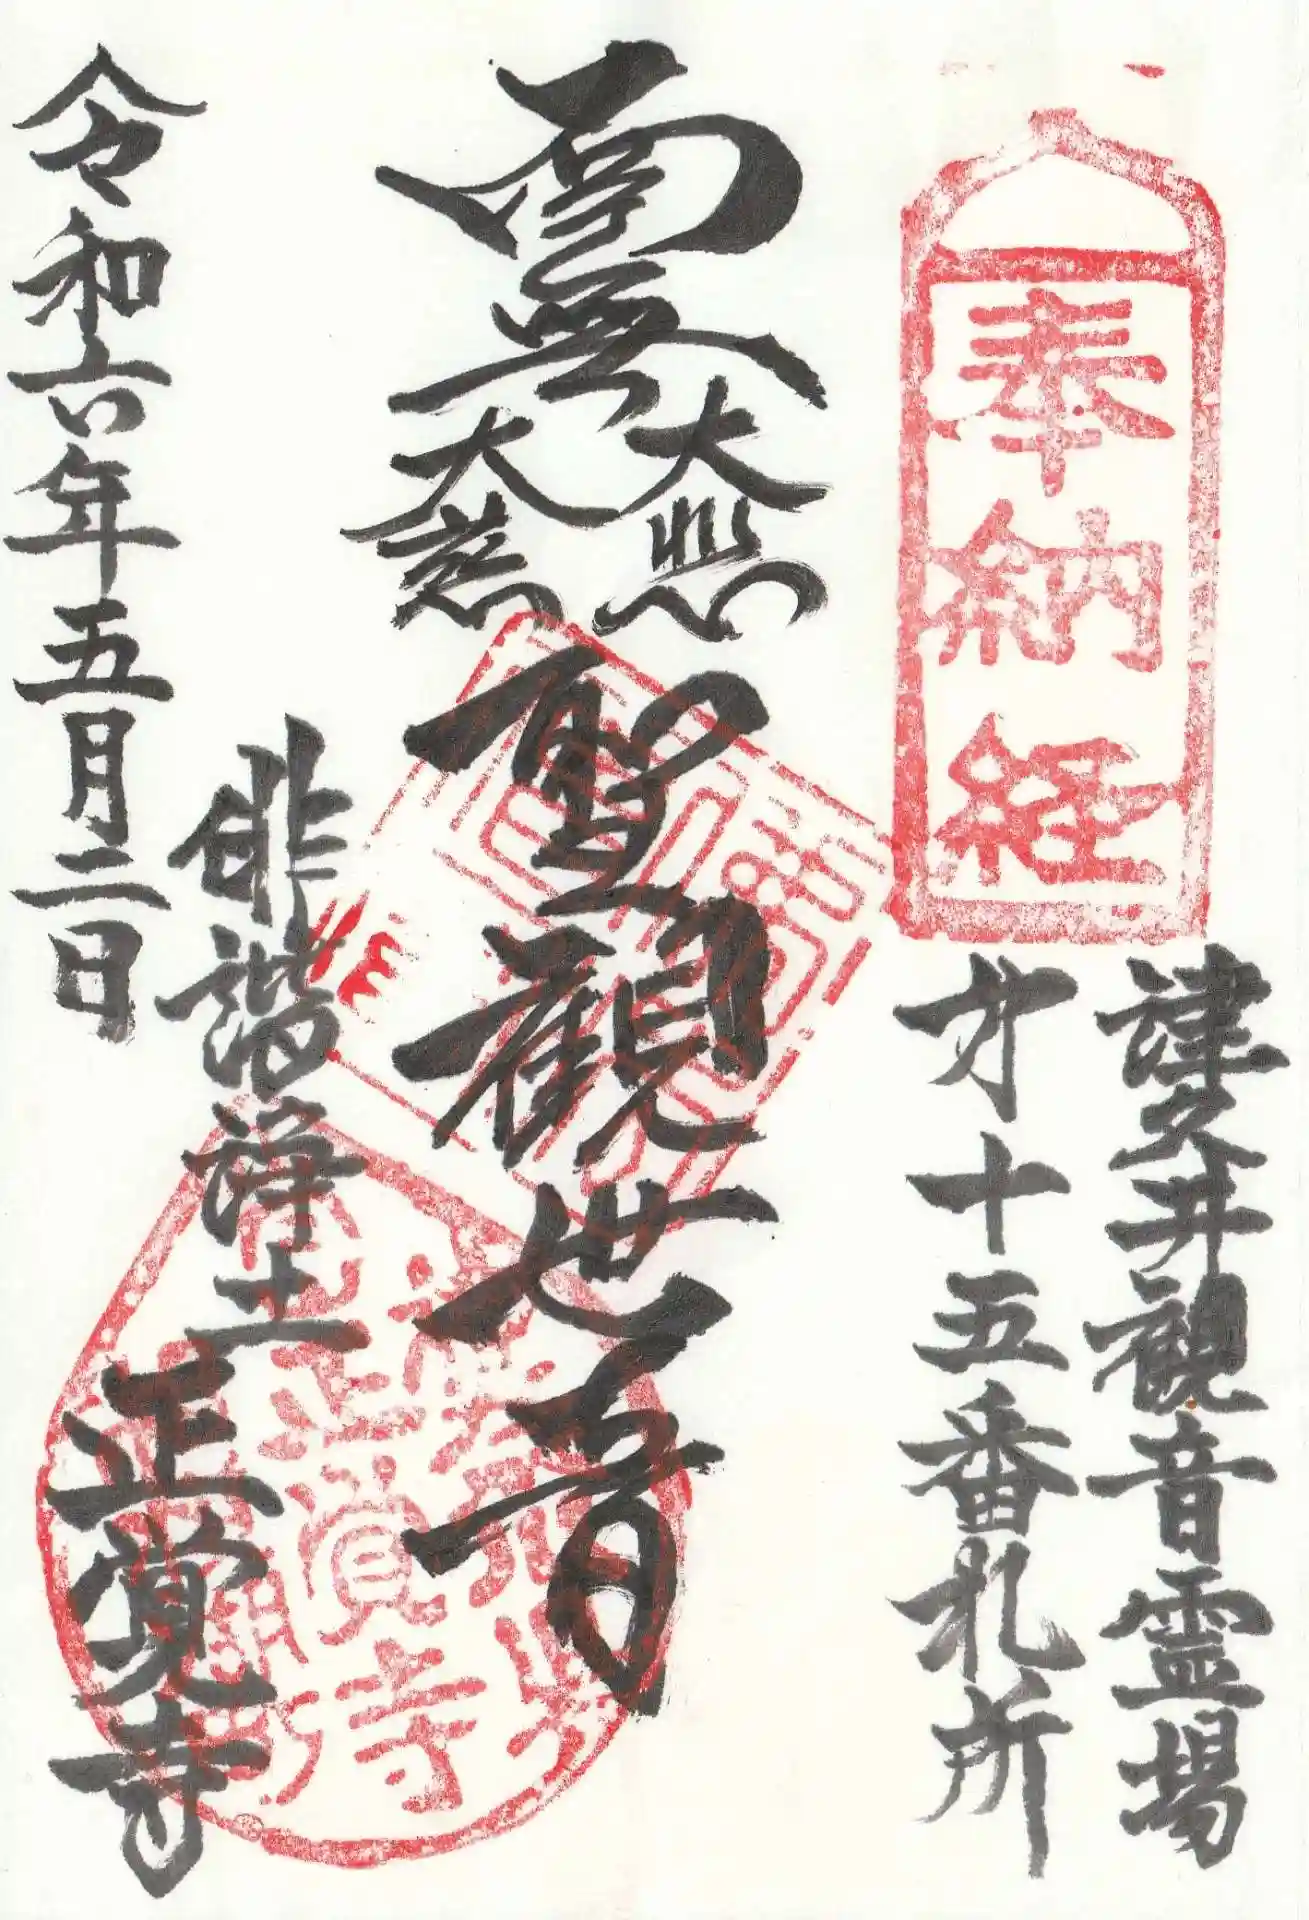 奉納経
津久井観音霊場
才十五番札所
南無
大悲
大慈
聖観世音
俳諧浄土
正覚寺
令和六年五月二日